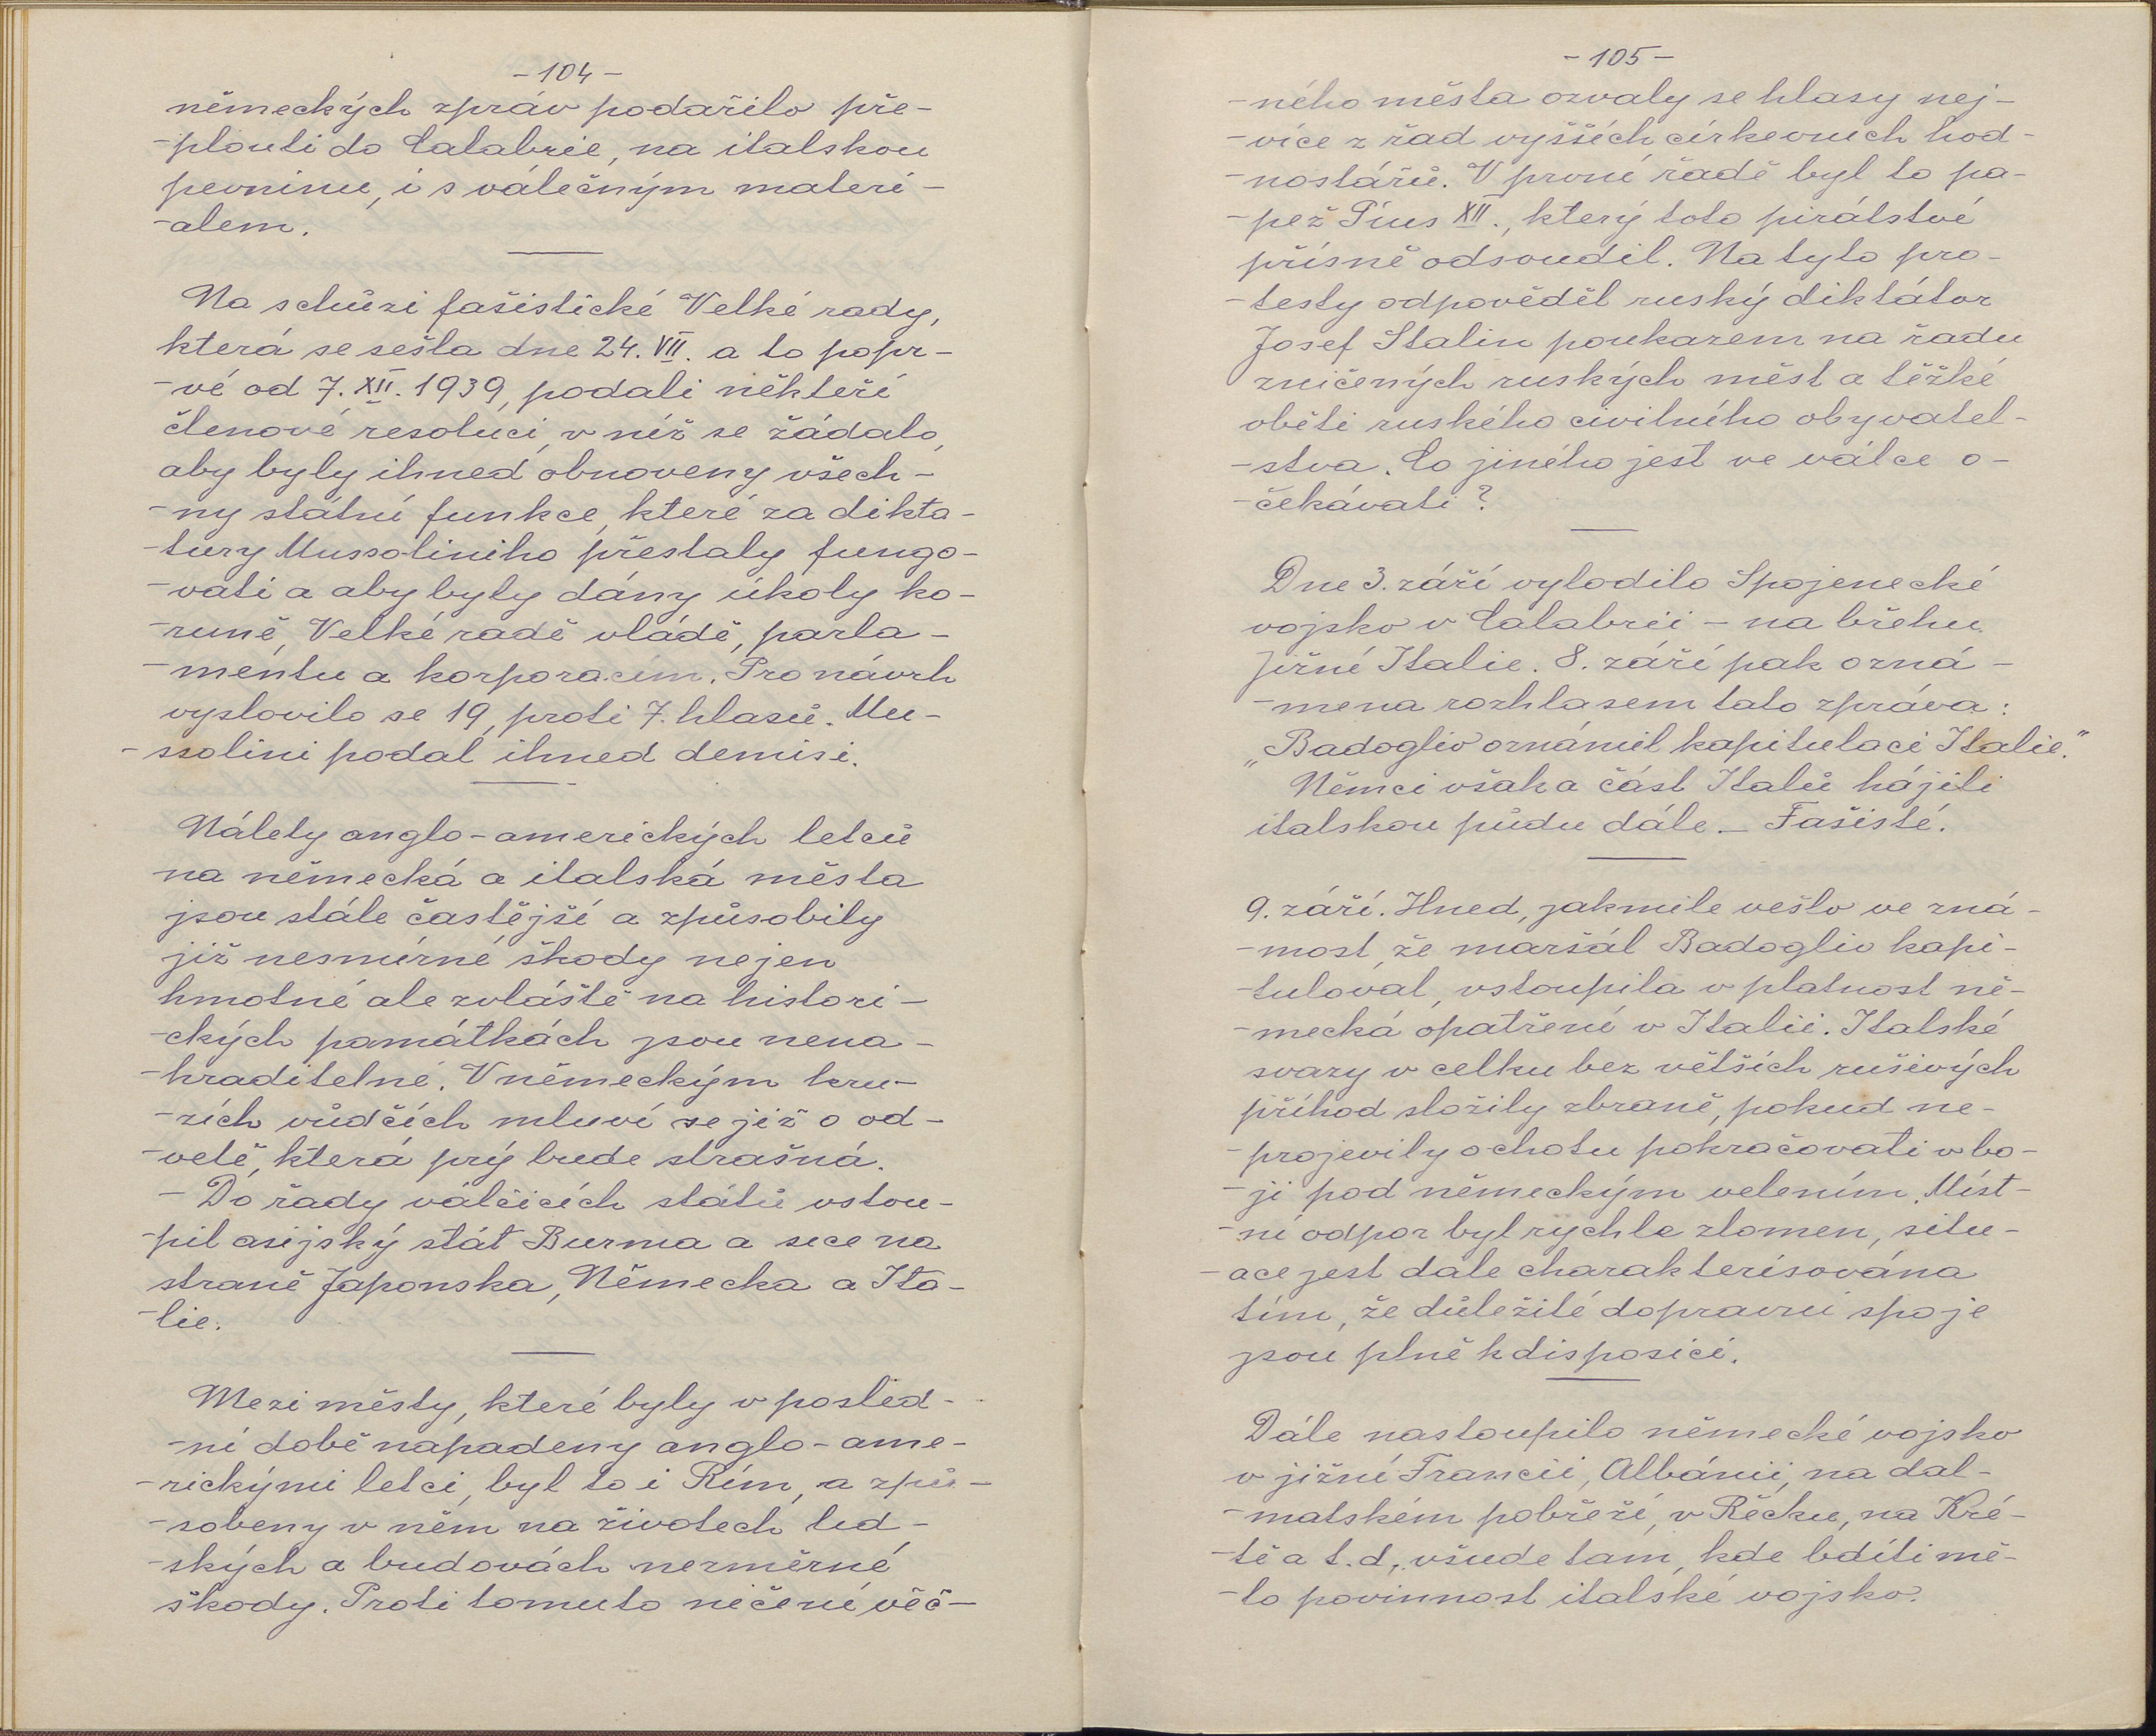 - 104 -
německých zpráv podařilo pře-
-plouti do Calabrie, na italskou
pevninu, i s válečným materi-
-alem.
Na schůzi fašistické Velké rady,
která se sešla dne 24. VII. a to popr-
-vé od 7. XII. 1939, podali někteří
členové resoluci, v níž se žádalo,
aby byly ihned obnoveny všech-
-ny státní funkce, které za dikta-
-tury Mussoliniho přestaly fungo-
-vati a aby byly dány úkoly ko-
-runě, Velké radě vládě, parla-
-mentu a korporacím. Pro návrh
vyslovilo se 19, proti 7. hlasů. Mu-
-ssolini podal ihned demisi.
Nálety anglo-amerických letců
na německá a italská města
jsou stále častější a způsobily
již nesmírné škody nejen
hmotné ale zvláště na histori-
-ckých památkách jsou nena-
-hraditelné. V německým kru-
-zích vůdčích mluví se již o od-
-vetě, která prý bude strašná.
- Do řady válčících států vstou-
-pil asijský stát Burma a sice na
straně Japonska, Německa a Ita-
-lie.
Mezi městy, které byly v posled-
-ní době napadeny anglo-ame-
-rickými letci, byl to i Řím, a způ-
-sobeny v něm na životech lid-
-ských a budovách nezměrné
škody. Proti tomuto ničení věč-
- 105 -
-ného města ozvaly se hlasy nej-
-více z řad vyšších církevních hod-
-nostářů. V první řadě byl to pa-
-pež Pius XII., který toto pirátství
přísně odsoudil. Na tyto pro-
-testy odpověděl ruský diktátor
Josef Stalin poukazem na řadu
zničených ruských měst a těžké
oběti ruského civilního obyvatel-
-stva. Co jiného jest ve válce o-
-čekávati?
Dne 3. září vylodilo Spojenecké
vojsko v Calabrii - na břehu
jižní Italie. 8. září pak ozná-
-mena rozhlasem tato zpráva:
„Badoglio oznámil kapitulaci Italie."
Němci však a část Italů hájili
italskou půdu dále. - Fašisté.
9. září. Hned, jakmile vešlo ve zná-
-most, že maršál Badoglio kapi-
-tuloval, vstoupila v platnost ně-
-mecká opatření v Italii. Italské
svazy v celku bez větších rušivých
příhod složily zbraně, pokud ne-
-projevily ochotu pokračovati v bo-
-ji pod německým velením. Míst-
-ní odpor byl rychle zlomen, situ-
-ace jest dále charakterisována
tím, že důležité dopravní spoje
jsou plně k disposici.
Dále nastoupilo německé vojsko
v jižní Francii, Albánii, na dal-
-matském pobřeží, v Řecku, na Kré-
-tě a t. d., všude tam, kde bdíti mě-
-lo povinnost italské vojsko.